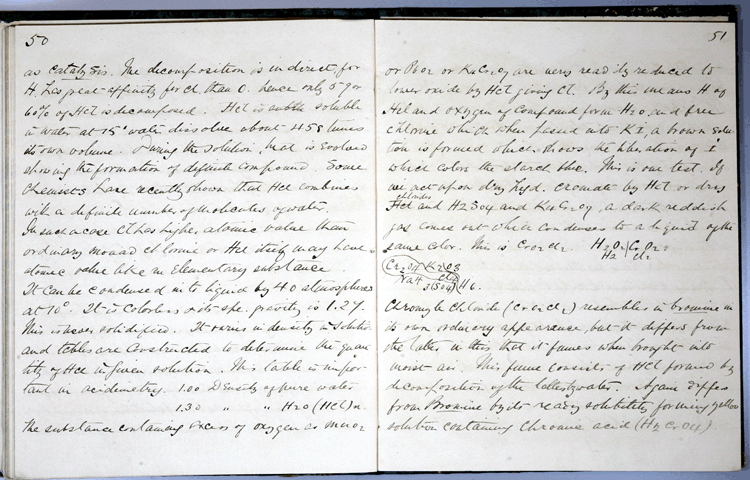 50
as catalysis. The decomposition is indirect, for
H. has great affinity for cl. than O. hence only 59 or
60% of Hcl is decomposed. Hcl is subtle soluble
in water at 15° water dissolve about 458 times
its own volume. During the solution, heat is evolved
showing the formation of definite compound. Some
chemists have recently shown that Hcl combines
with a definite number of molecules of water.
In such a case Cl has higher atomic value than
ordinary monad chlorine or Hcl itself may have
atomic value like an Elementary substance.
It can be condensed into liquid by 40 atmospheres
at 10°. It is Colorless & its spe. gravity is 1.27.
This is never solidified. It varies in density in solution
and tables are Constructed to determine the quan
tity of Hcl in given solution. This table is impor
tant in acidimetry. 1.00 Density of pure water
1.30 " " H2O (Hcl)n.
The substance containing excess of oxygen as MnO2
51
or PbO2 or K2Cr2O7 are very readily reduced to
lower oxide by Hcl giving Cl. By this means H of
Hcl and oxygen of Compound form H2O, and free
chlorine which when passed into KI, a brown solu
tion is formed which shows the liberation of i
which colors the starch blue. This is our test. If
we act upon dry hyd. cromate by Hcl or dry
chlorides
Hcl and H2SO4 and K2Cr2O7, a dark reddish
gas comes out which condenses to a liquid of the
same color. This is CrO2Cl2. H2O2 CrO2
H2 Cl2
Cr2O4 K2O3
NaH Cl2
3(SO4) H6.
Chromyle Chloride (CrO2Cl2) resembles in bromine in
its own ordinary appearance, but it differs from
the latter in this that it fumes when brought into
moist air. This fume consists of HCl formed by
decomposition of the latter by water. Again differs
from Bromine by its ready solubility forming yellow
solution containing Chromic acid (H2CrO4).